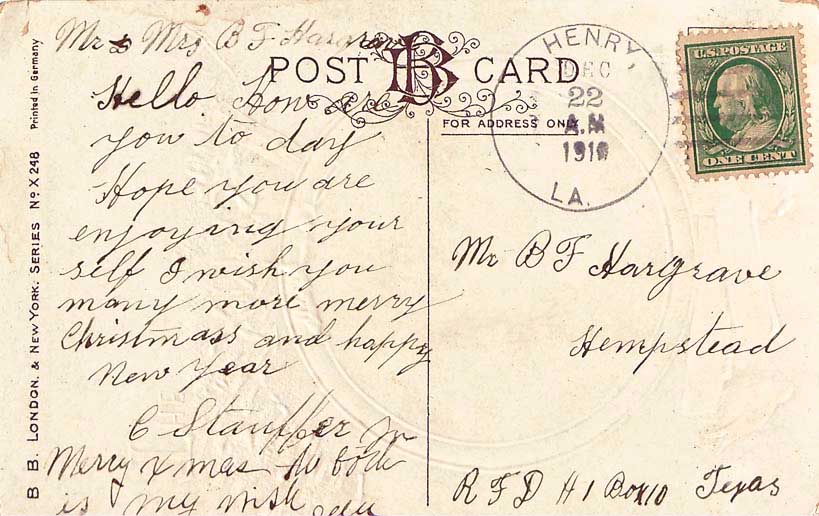 Mr & Mrs B F Hargrave
Hello How are
you to day
Hope you are
enjoying your
self I wish you
many more merry
Christmass and happy
New Year
C Stauffer Jr
Merry Xmas to both
is my wish
POST CARD
BB
FOR ADDRESS ONLY
HENRY,
DEC
22
A.M
1910
LA.
U.S. POSTAGE
ONE CENT
Mr B F Hargrave
Hempstead
R F D # 1 Box 10 Texas
B B. LONDON, & NEW YORK. SERIES No X 248 Printed in Germany